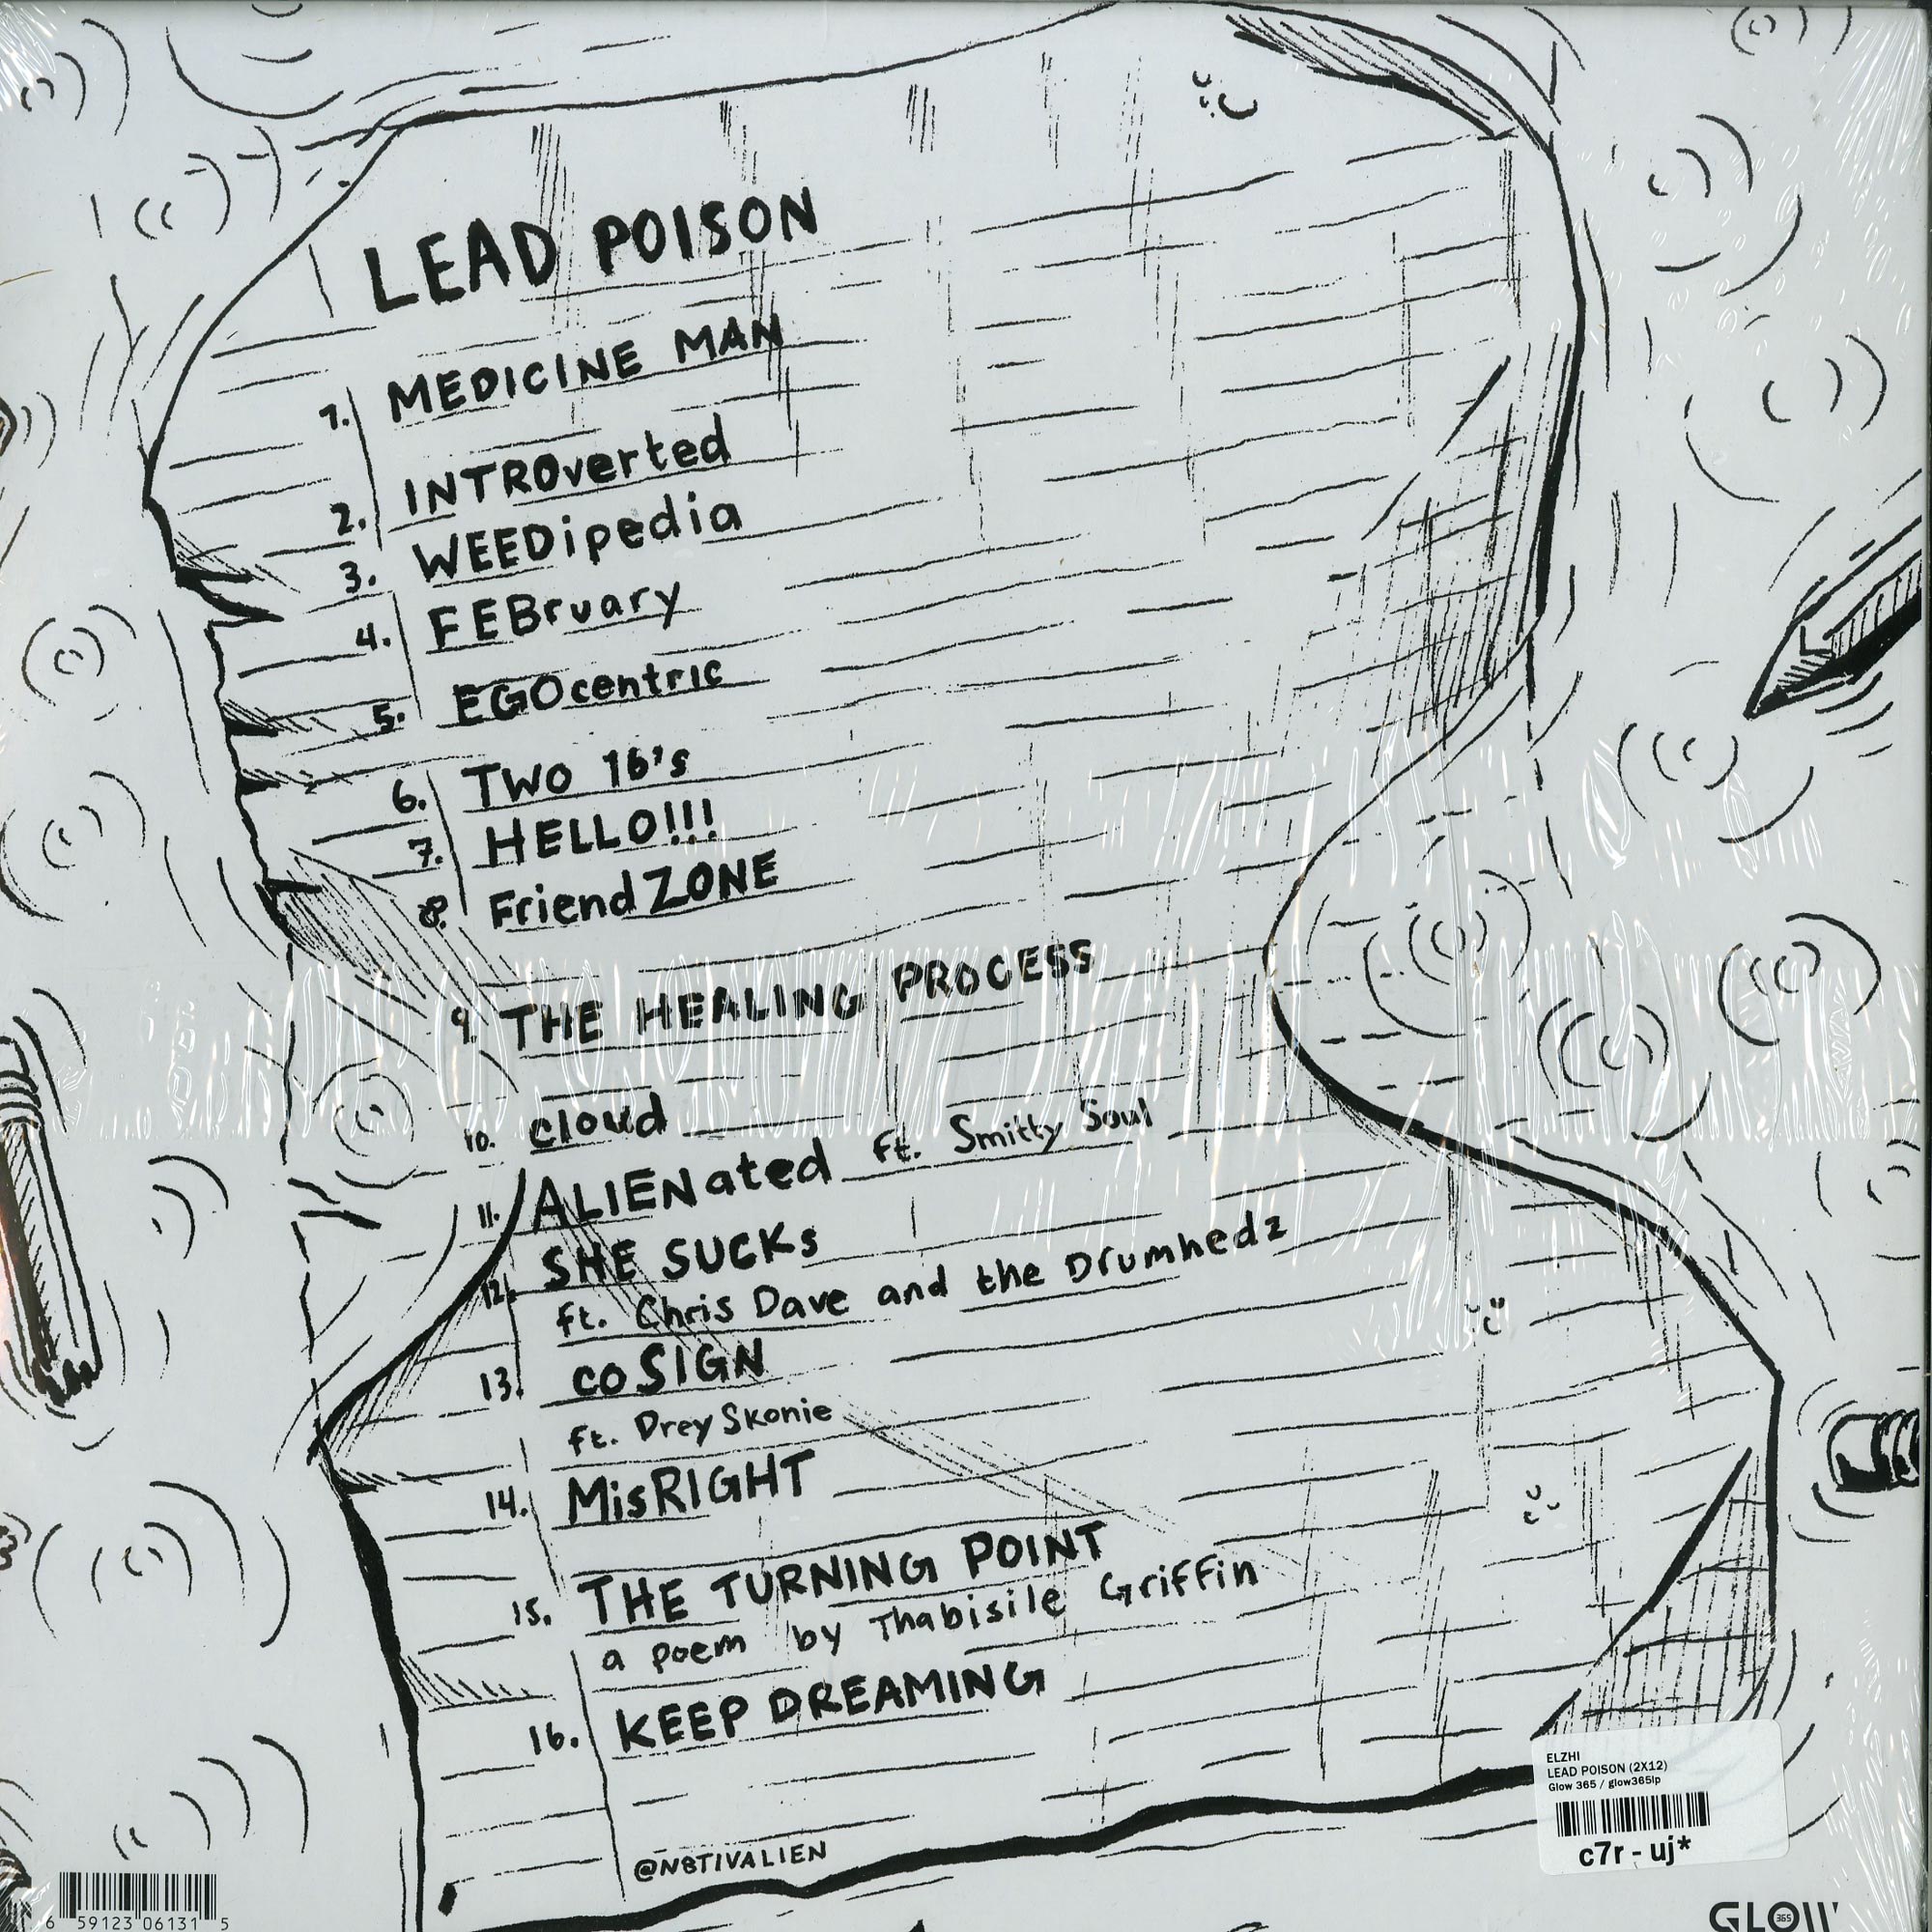 LEAD POISON
1. MEDICINE MAN
2. INTROverted
3. WEEDipedia
4. FEBruary
5. EGOcentric
6. TWO 16's
7. HELLO!!!
8. FriendZONE
9. THE HEALING PROCESS
10. cloud
11. ALIENated ft. Smitty Soul
12. SHE SUCKs
ft. Chris Dave and the Drumhedz
13. coSIGN
ft. Drey Skonie
14. MisRIGHT
15. THE TURNING POINT
a poem by Thabisile Griffin
16. KEEP DREAMING
@N8TIVALIEN
ELZHI
LEAD POISON (2X12)
Glow 365 / glow365lp
c7r - uj*
6 59123 06131 5
GLOW 365